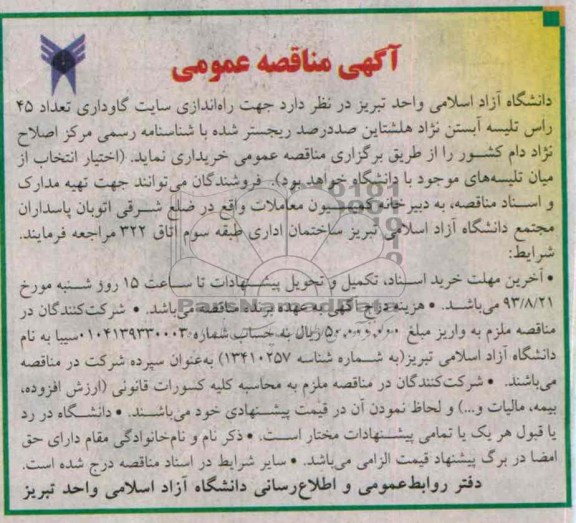 آگهی مناقصه عمومی
دانشگاه آزاد اسلامی واحد تبریز در نظر دارد جهت راه‌اندازی سایت گاوداری تعداد ۴۵
راس تلیسه آبستن نژاد هلشتاین صددرصد ریجستر شده با شناسنامه رسمی مرکز اصلاح
نژاد دام کشور را از طریق برگزاری مناقصه عمومی خریداری نماید. (اختیار انتخاب از
میان تلیسه‌های موجود با دانشگاه خواهد بود). فروشندگان می‌توانند جهت تهیه مدارک
و اسناد مناقصه، به دبیرخانه کمیسیون معاملات واقع در ضلع شرقی اتوبان پاسداران
مجتمع دانشگاه آزاد اسلامی تبریز ساختمان اداری طبقه سوم اتاق ۳۲۲ مراجعه فرمایند.
شرایط:
• آخرین مهلت خرید اسناد، تکمیل و تحویل پیشنهادات تا ساعت ۱۵ روز شنبه مورخ
۹۳/۸/۲۱ می‌باشد. • هزینه درج آگهی به عهده برنده مناقصه می‌باشد. • شرکت‌کنندگان در
مناقصه ملزم به واریز مبلغ ریال به حساب شماره ۰۱۰۴۱۳۹۳۳۰۰۰۳ سیبا به نام
دانشگاه آزاد اسلامی تبریز(به شماره شناسه ۱۳۴۱۰۲۵۷) به‌عنوان سپرده شرکت در مناقصه
می‌باشند. • شرکت‌کنندگان در مناقصه ملزم به محاسبه کلیه کسورات قانونی (ارزش افزوده،
بیمه، مالیات و...) و لحاظ نمودن آن در قیمت پیشنهادی خود می‌باشند. • دانشگاه در رد
یا قبول هر یک یا تمامی پیشنهادات مختار است. • ذکر نام و نام‌خانوادگی مقام دارای حق
امضا در برگ پیشنهاد قیمت الزامی می‌باشد. • سایر شرایط در اسناد مناقصه درج شده است.
دفتر روابط‌عمومی و اطلاع‌رسانی دانشگاه آزاد اسلامی واحد تبریز